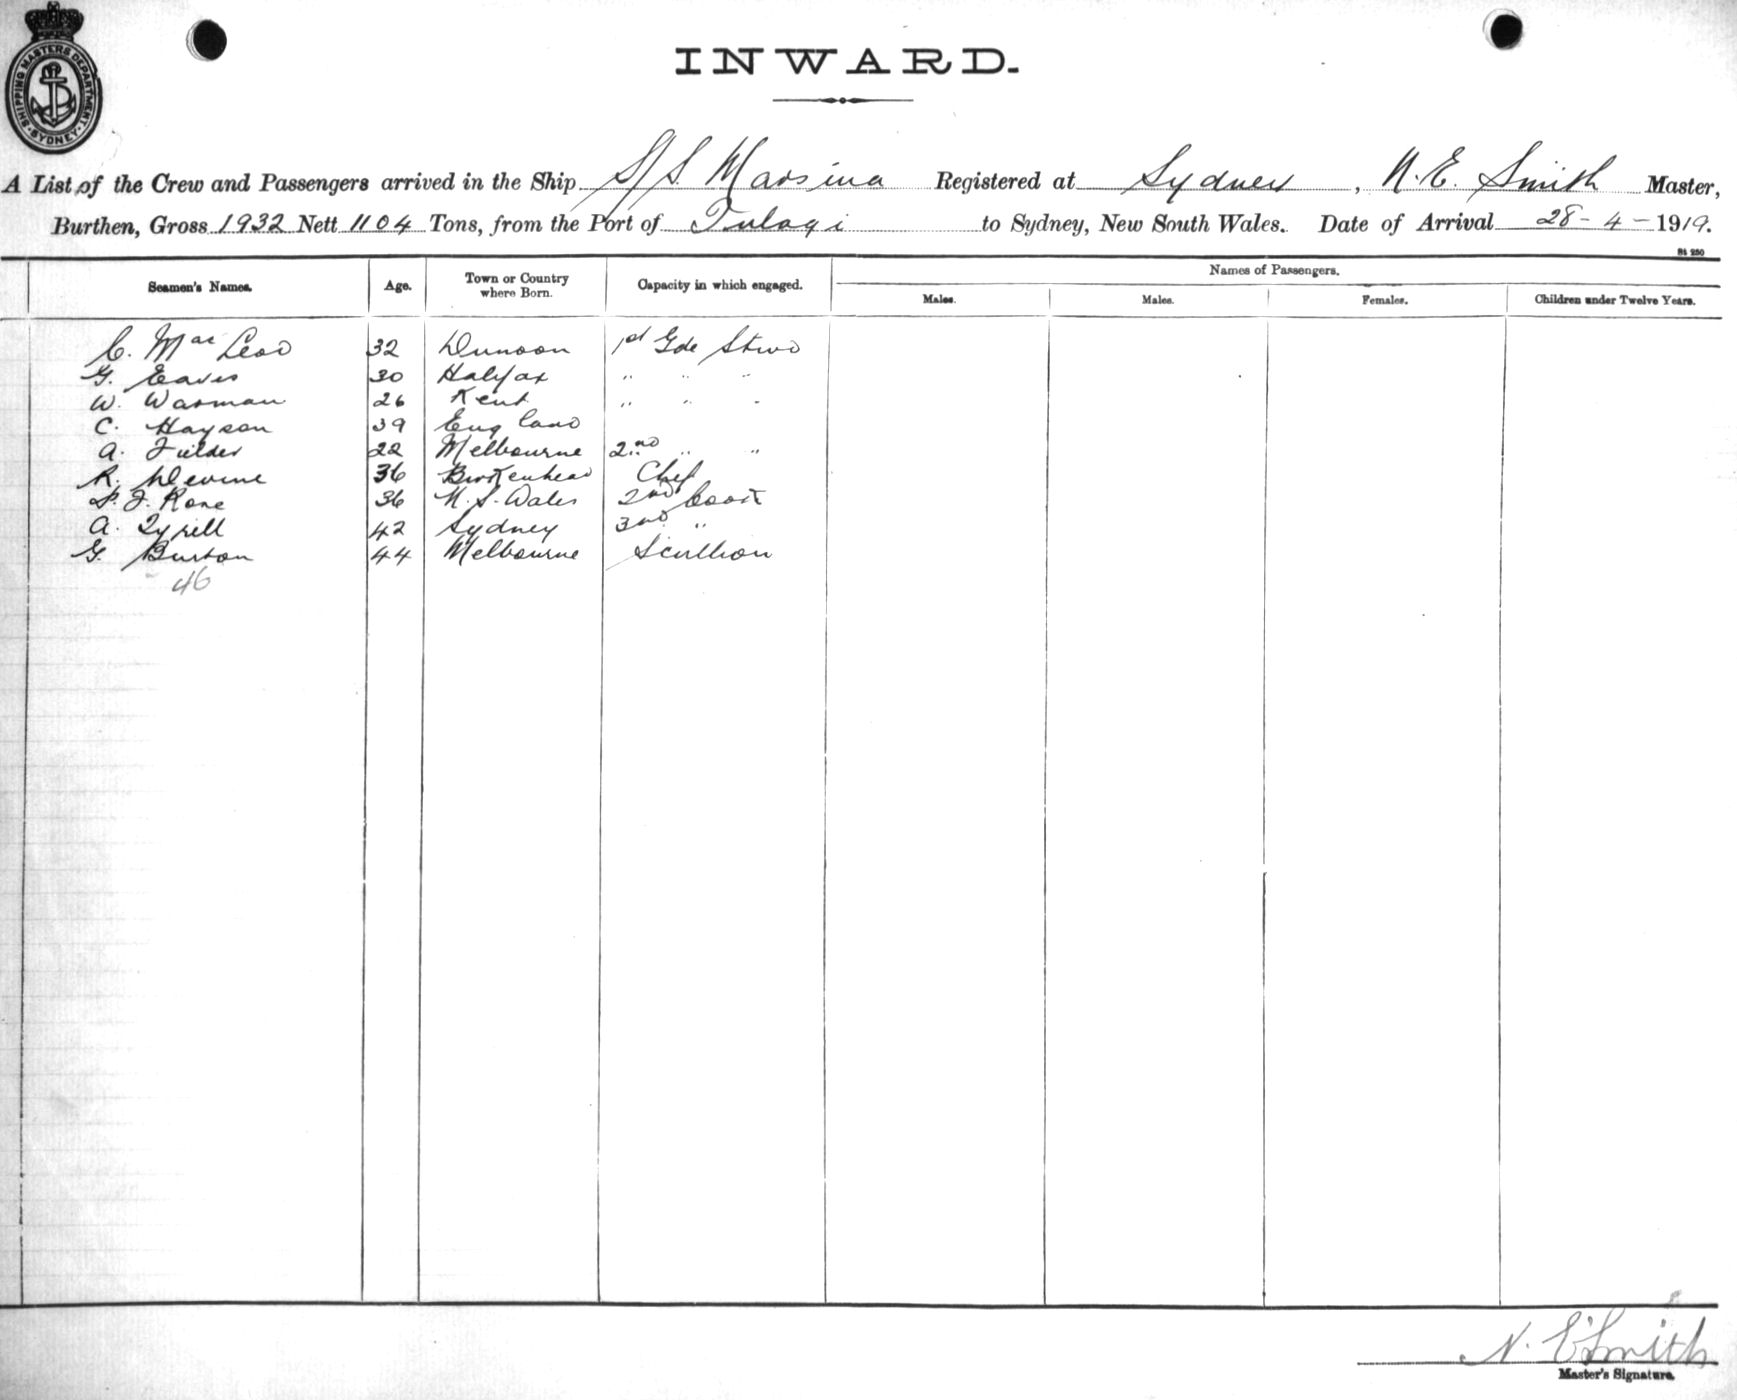 SHIPPING MASTERS DEPARTMENT
SYDNEY
INWARD.
A List of the Crew and Passengers arrived in the Ship S/S. Marsina Registered at Sydney, N. E. Smith Master,
Burthen, Gross 1932 Nett 1104 Tons, from the Port of Tulagi to Sydney, New South Wales. Date of Arrival 28-4-1919.
St 250
Seamen's Names. Age. Town or Country where Born. Capacity in which engaged. Names of Passengers.
Males. Males. Females. Children under Twelve Years.
C. Mac Leod 32 Dunoon 1st Gde Stwd
G. Eaves 30 Halifax " " "
W. Warman 26 Kent " " "
C. Hayson 39 England
A. Fielder 22 Melbourne 2nd " "
R. Devine 36 Birkenhead Chef
36 N. S. Wales 2nd Cook
A. Tyrell 42 Sydney 3rd "
G. Burton 44 Melbourne Scullion
46
N. E Smith
Master's Signature.